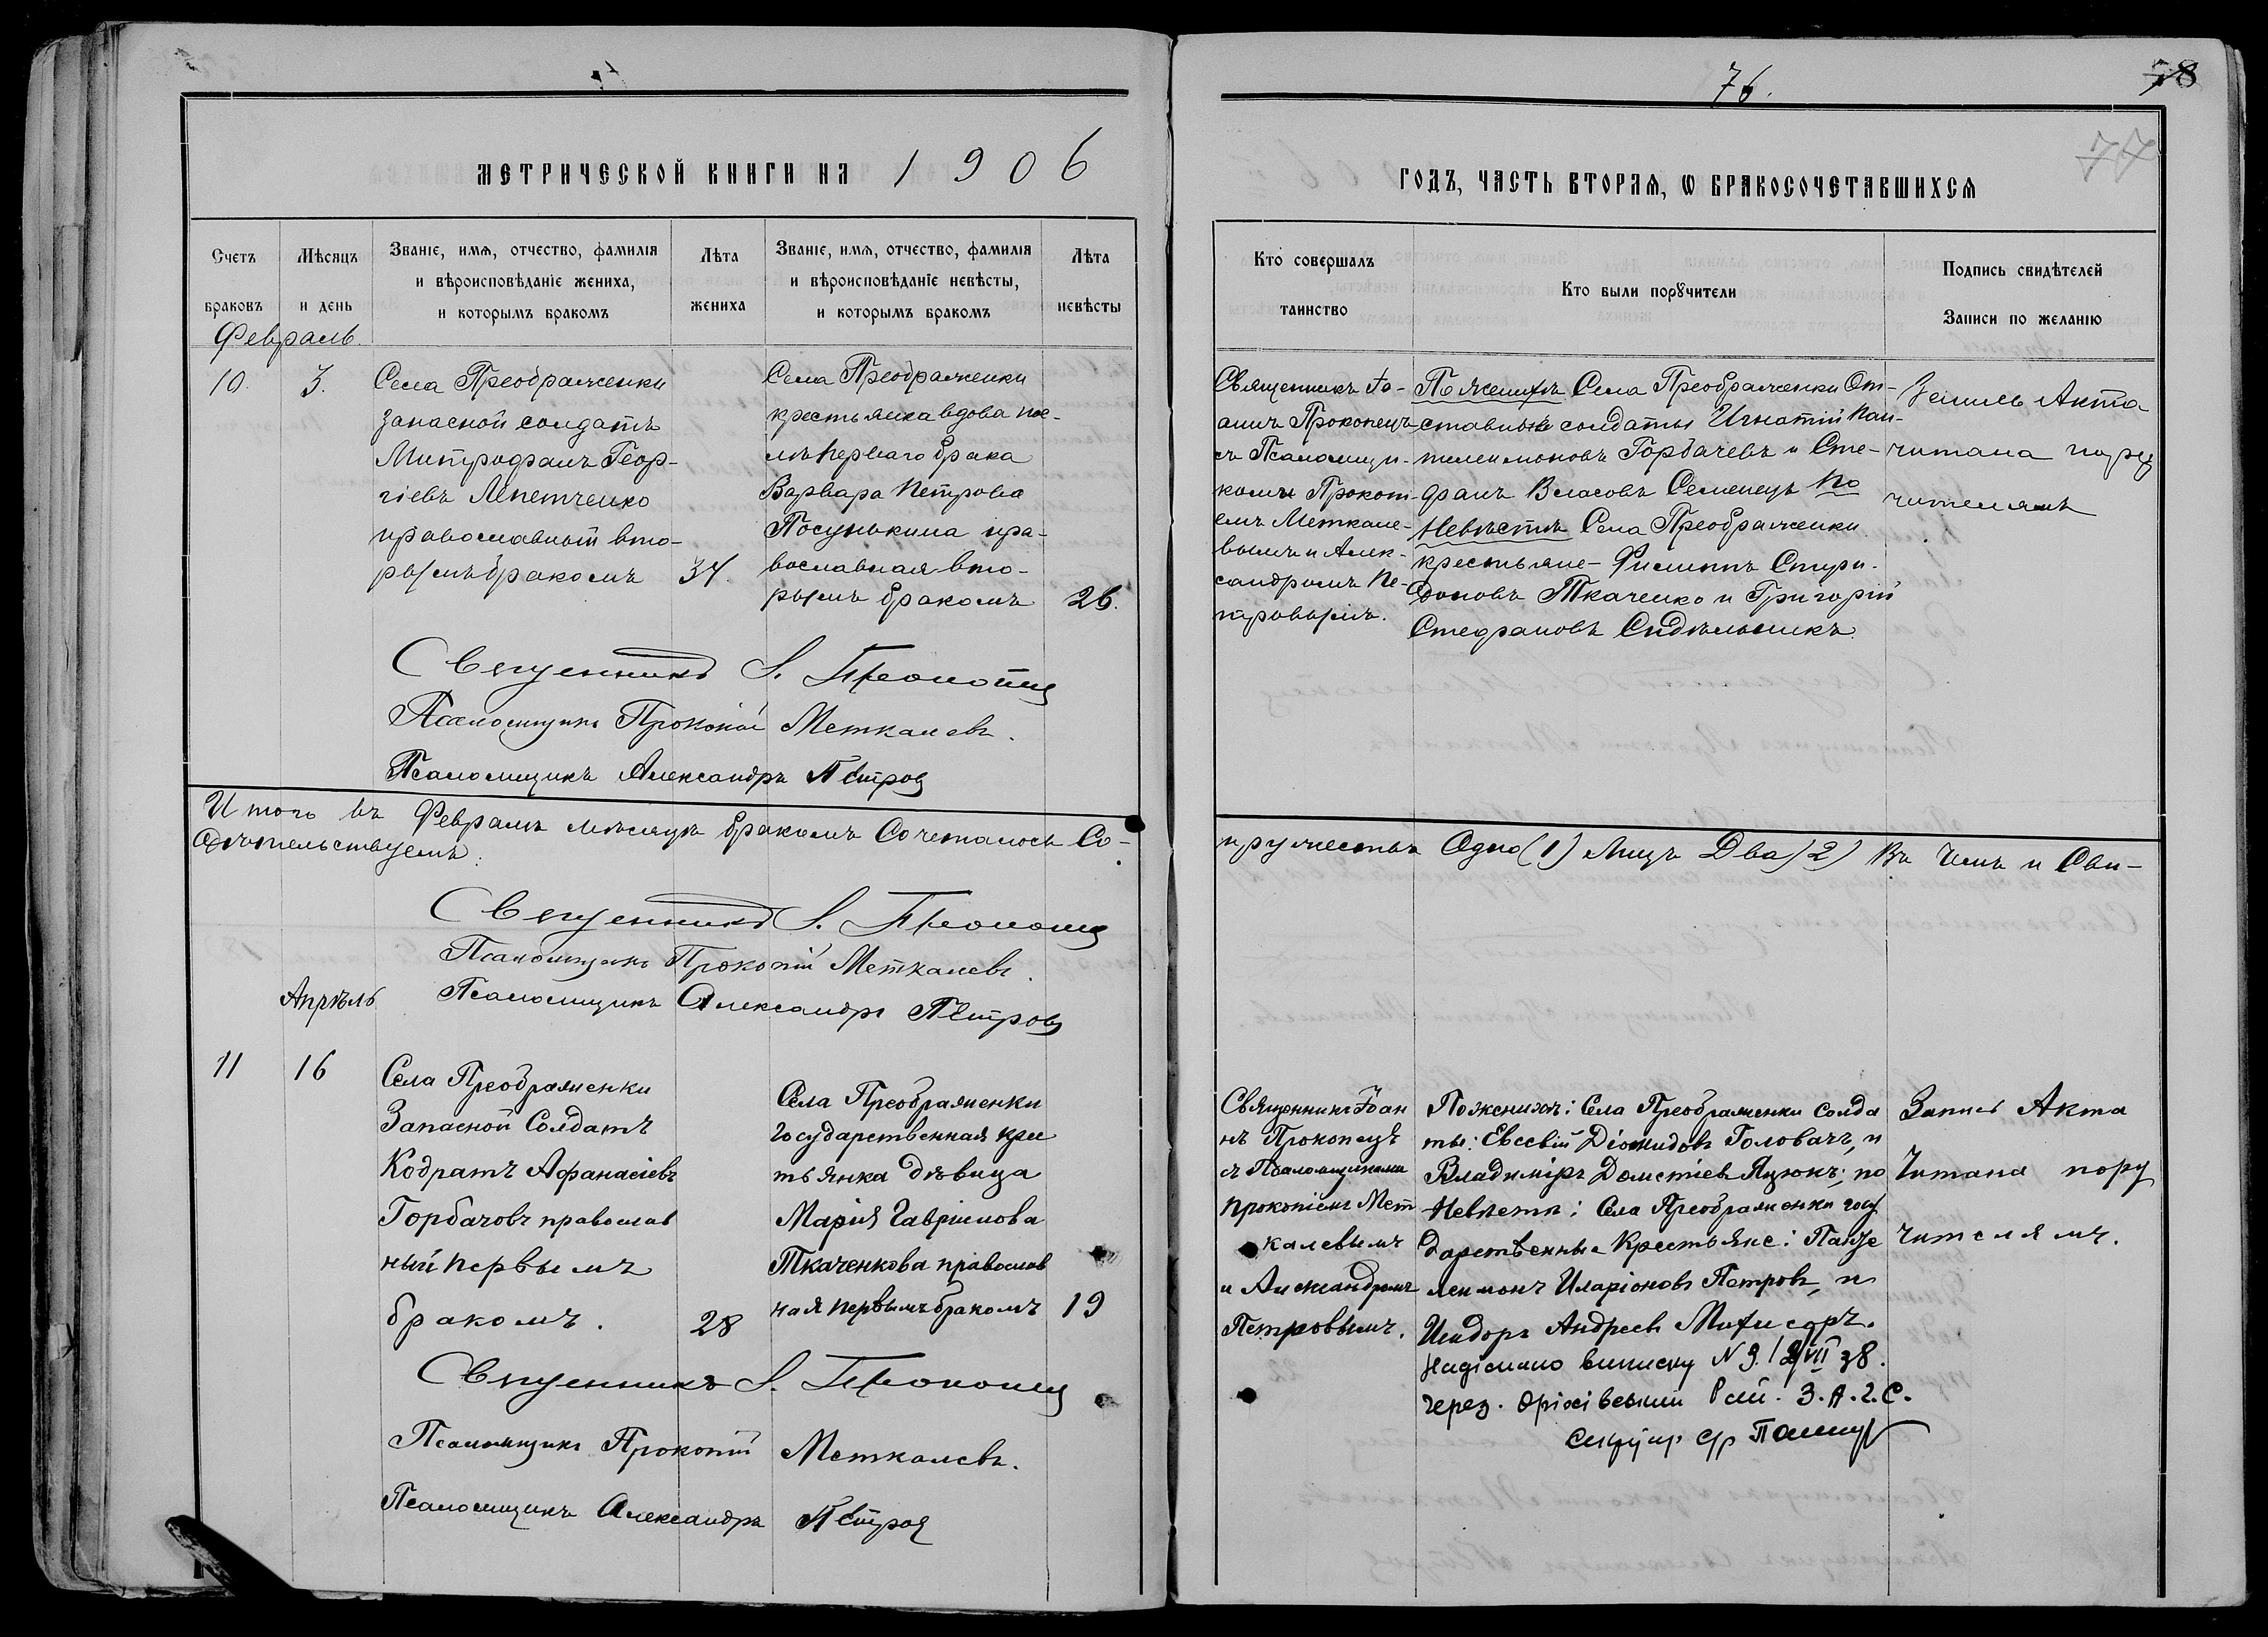 76.
78
77
МЕТРИЧЕСКОЙ КНИГИ НА 1906
ГОДЪ, ЧАСТЬ ВТОРАЯ, Ѡ БРАКОСОЧЕТАВШИХСЯ
Счетъ
браковъ
Мѣсяцъ
и день
Званіе, имя, отчество, фамилія
и вѣроисповѣданіе жениха,
и которымъ бракомъ
Лѣта
жениха
Званіе, имя, отчество, фамилія
и вѣроисповѣданіе невѣсты,
и которымъ бракомъ
Лѣта
невѣсты
Кто совершалъ
таинство
Кто были поручители
Подпись свидѣтелей
Записи по желанію
Февраль
10.
3.
Села Преображенки
запасной солдатъ
Митрофанъ Геор-
гіевъ
православный вто-
рымъ бракомъ
34.
Села Преображенки
крестьянка вдова пос-
лѣ перваго брака
Варвара Петрова
Посунькина пра-
вославная вто-
рымъ бракомъ
26.
Священникъ Іо-
аннъ Прокопецъ
съ Псаломщи-
комъ Прокопі-
емъ Меткале-
вымъ и Алек-
сандромъ Пе-
тровымъ.
По женихѣ Села Преображенки От-
ставные солдаты Игнатій Пан-
телеимоновъ Горбачевъ и Сте-
фанъ Власовъ Семенецъ По
Невѣстѣ Села Преображенки
крестьяне Филиппъ Спири-
доновъ Ткаченко и Григорій
Стефановъ Сидѣльникъ.
Запись Акта
читана пору
чителямъ
Священникъ І. Прокопец
Псаломщикъ Прокопій Меткалевъ.
Псаломщикъ Александръ Петров
Итого въ Февралѣ мѣсяцѣ бракомъ Сочеталось Со-
пружествъ Одно (1) Лицъ Два (2) Въ Чемъ и Сви-
дѣтельствуемъ:
Священникъ І. Прокопец
Псаломщикъ Прокопій Меткалевъ.
Псаломщикъ Александръ Петров
Апрѣль
11
16
Села Преображенки
Запасной Солдатъ
Кодратъ Афанасіевъ
Горбачовъ православ
ный первымъ
бракомъ.
28
Села Преображенки
государственная крес
тьянка дѣвица
Марія Гавріилова
Ткаченкова православ
ная первымъ бракомъ
19
Священникъ Іоан
нъ Прокопецъ
съ Псаломщиками
Прокопіемъ Мет
калевымъ
и Александромъ
Петровымъ.
По женихѣ: Села Преображенки солда
ты: Евсевій Діомидовъ Головачъ, и
Владиміръ Дометіевъ Яцюкъ; по
Невѣстѣ: Села Преображенки госу
дарственные Крестьяне: Панте
леимонъ Иларіоновъ Петровъ, и
Исидоръ Андреевъ
Запись Акта
Читана пору
чителямъ.
Надіслано виписку N 9. 12/VII 38.
через. Оріхівський Рай. З.А.Г.С.
Священникъ І. Прокопец
Псаломщикъ Прокопій Меткалевъ.
Псаломщикъ Александръ Петров